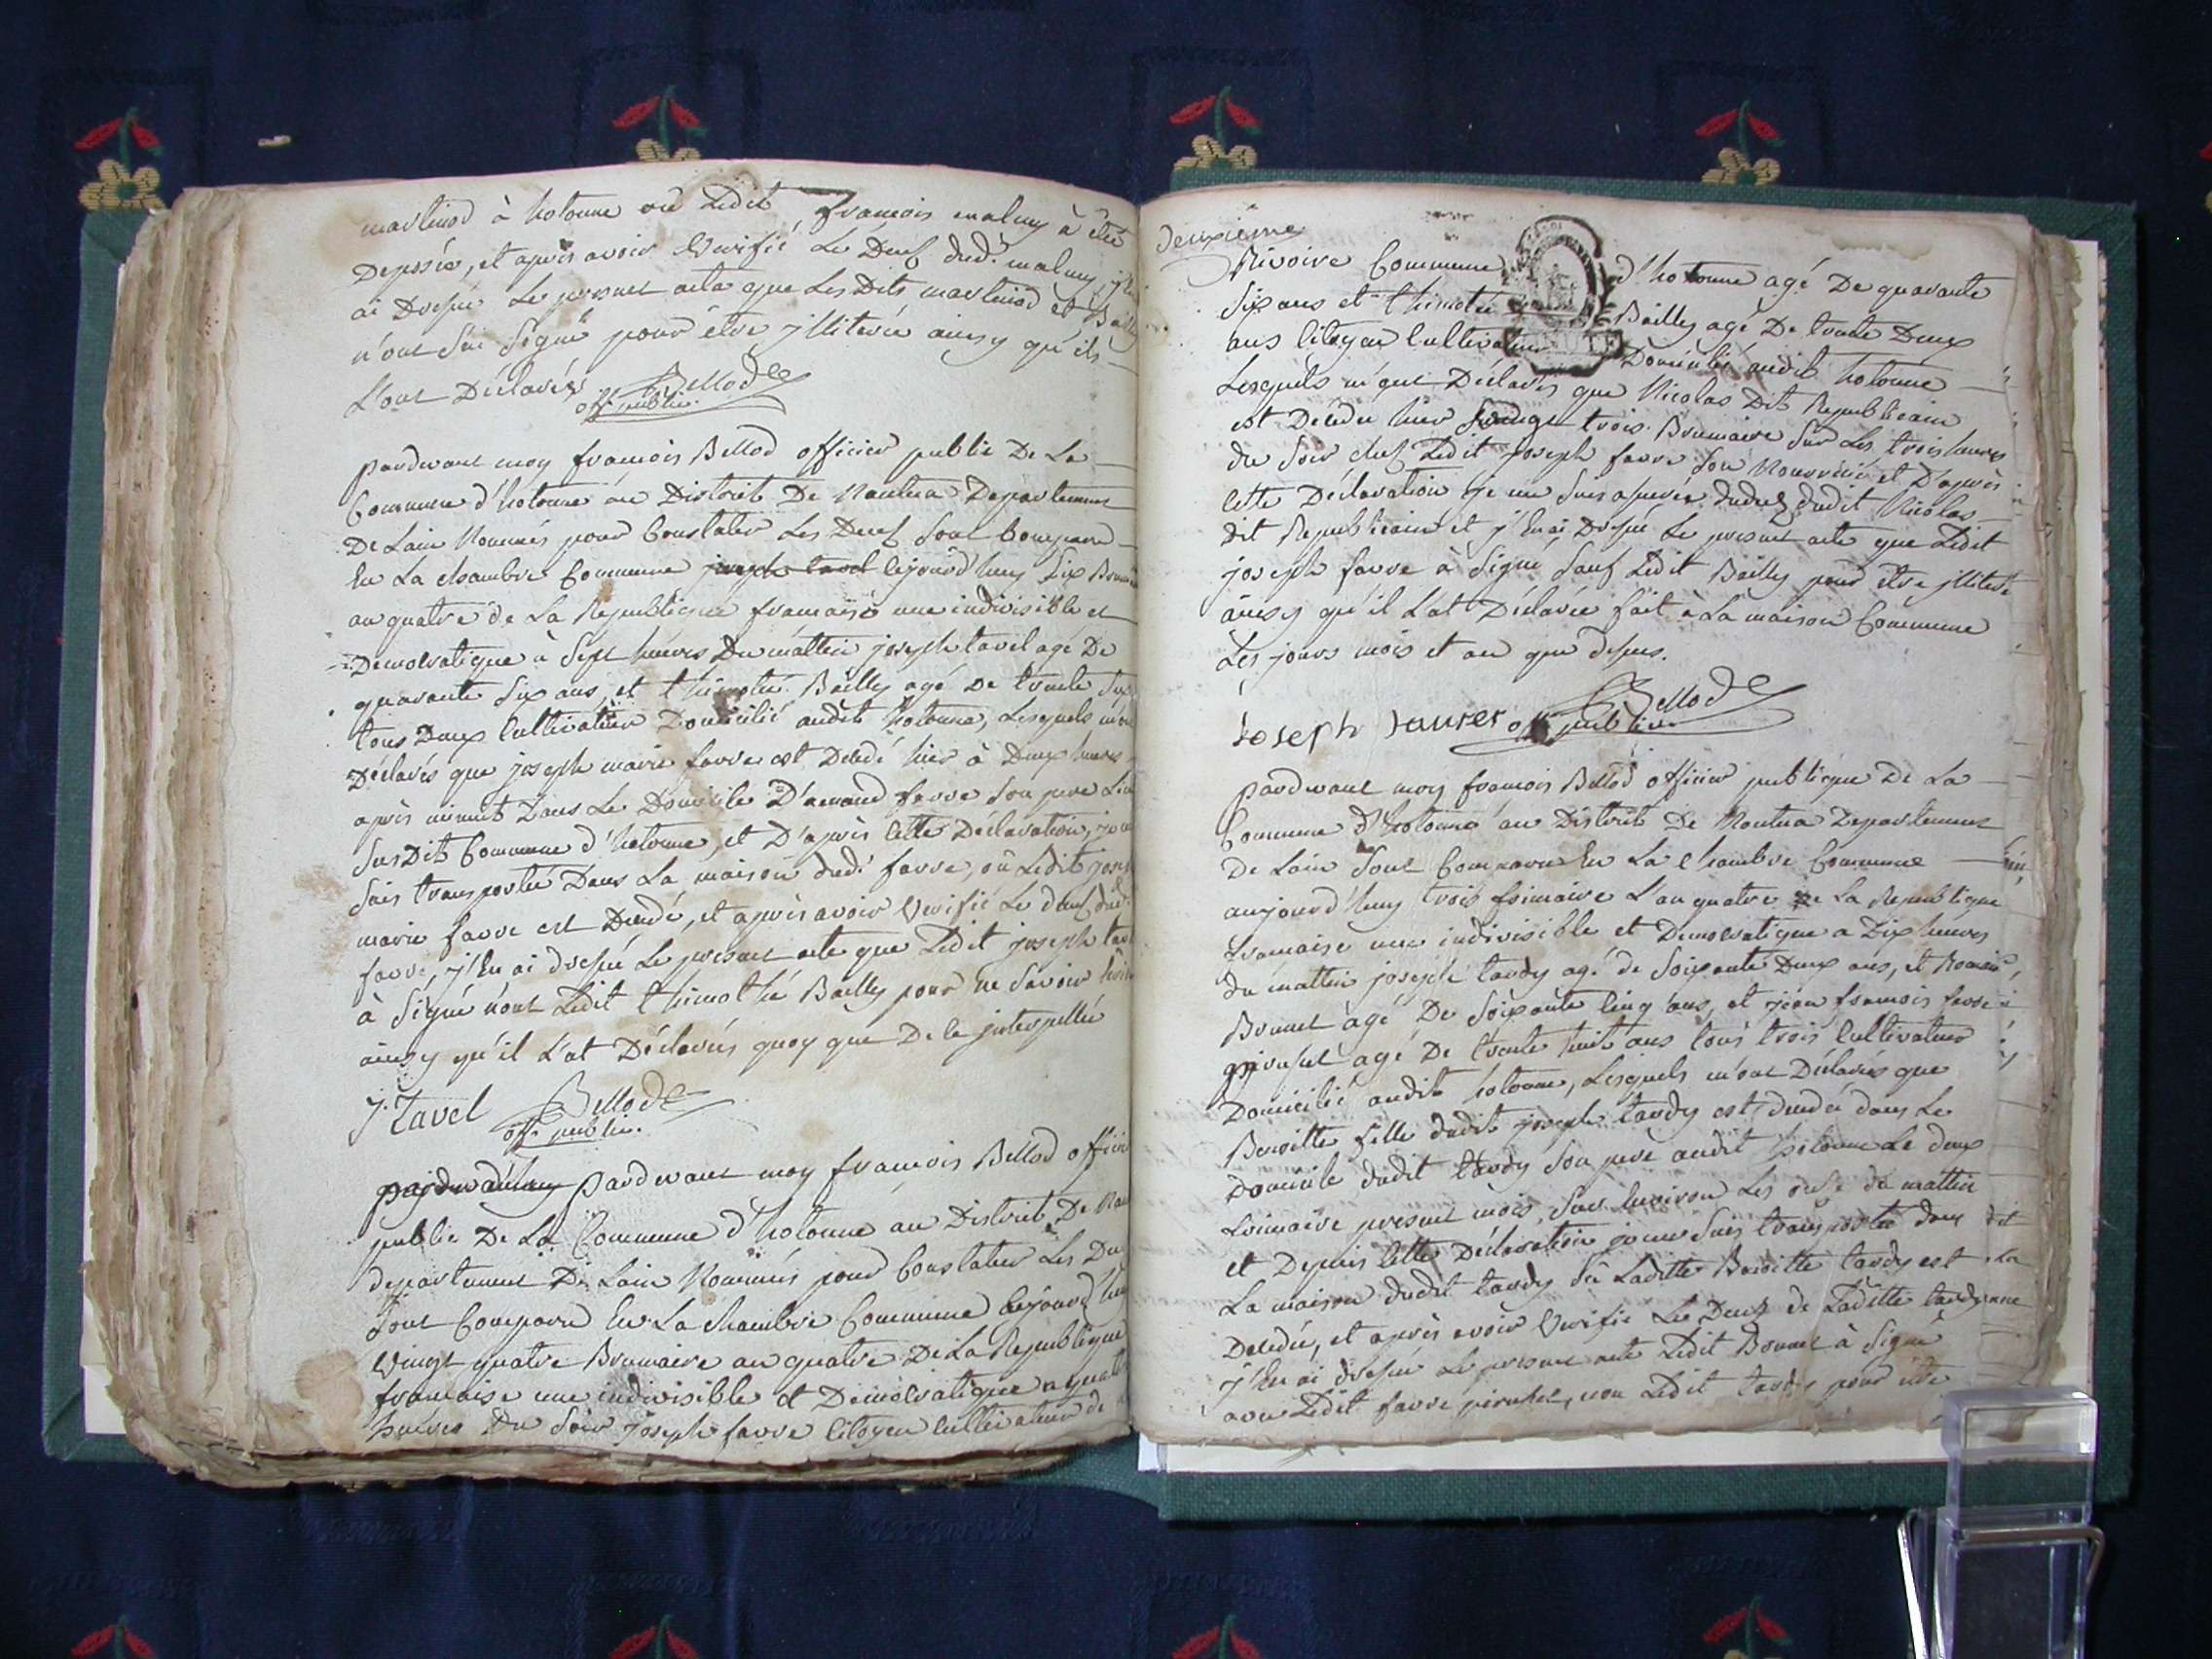 martinod à hotonne où Ledit françois malmy à été
Deposée, et après avoir Verifié Le Deuf dud. malmy
ai Dressé Le present acte que Les Dits martinod et Bailly
n'ont Sû Signé pour être jlliterée ainsy qu'ils
L'ont Déclarés Bellod
off. public.
pardevant moy françois Bellod officier public De La
Commune d'hotonne au District De Nantua Departement
De Lain Nommés pour Constater Les Deuf Sont Comparu
En La chambre Commune joseph tavel cejourd'huy Six Brumaire
an quatre de La Republique françaisse une indivisible et
Democratique à Sept heures Du mattin joseph tavel agé De
quarante Six ans, et thimotée Bailly agé De trente
tous Deux Cultivateur Domicilié audit hotonne, Lesquels m'ont
Déclarés que joseph marie favre est Decedé hier à Deux heures
après minuit Dans Le Domicile D'amand favre Son pere
Susdit Commune d'hotonne, et D'après Cette Déclaration,
Suis transportée Dans La maison dud. favre, où Ledit joseph
marie favre est Decedé, et après avoir Verifié Le deuf dud.
favre, j'En ai dressé Le present acte que Ledit joseph tavel
à Signé nont Ledit thimothé Bailly pour ne Savoir
ainsy qu'il L'at Déclarés quoy que De Le jnterpellée
J. Tavel Bellod
off. public.
pardevant moy françois Bellod officier
public De La Commune d'hotonne au District De
departement De Lain Nommés pour Constater Les
Sont Comparu En La chambre Commune cejourd'huy
Vingt quatre Brumaire an quatre De La Republique
française une indivisible et Democratique a quatre
heures Du Soir joseph favre Citoyen Cultivateur de
Deuxième
Rivoire Commune d'hotonne agé De quarante
Six ans et thimotée Bailly agé De trente Deux
ans Citoyen Cultivateur Domicilié audit hotonne
Lesquels m'ont Déclarés que Nicolas Dit Republicain
est Decedu hier vingt trois Brumaire Sur Les trois heures
du Soir chez Ledit joseph favre Son Nourricié et D'après
Cette Déclaration je me Suis assurée dudeuf dudit Nicolas
dit Republicain et j'En ai Dressé Le present acte que Ledit
joseph favre à Signé Sauf Ledit Bailly pour être jllitere
ainsy qu'il L'at Déclarée fait à La maison Commune
Les jours mois et an que dessus.
Joseph faurer Bellod
off. public
pardevant moy françois Bellod officier publique De La
Commune d'hotonne au District De Nantua Departement
De Lain Sont Comparu En La chambre Commune
aujourd'huy trois frimaire L'an quatre De La Republique
francaise une indivisible et Democratique a Dix heures
du mattin joseph tardy agé de Soixante Deux ans, et Romain
Bonnet agé De Soixante Cinq ans, et jean françois favre
agé De trente huit ans tous trois Cultivateur
Domicilié audit hotonne, Lesquels m'ont Déclarés que
Benoitte fille dudit joseph tardy est decedée dans Le
Domicile dudit tardy Son pere audit hotonne Le deux
frimaire present mois, Sur Environ Les onze du mattin
et Depuis Cette Déclaration je me Suis transportée dans
La maison dudit tardy Où Laditte Benoitte tardy est
Decedée, et après avoir Verifié Le Deuf de Laditte tardy
j'En ai dressé Le present acte Ledit Bonnet à Signé
avec Ledit favre non Ledit tardy pour être